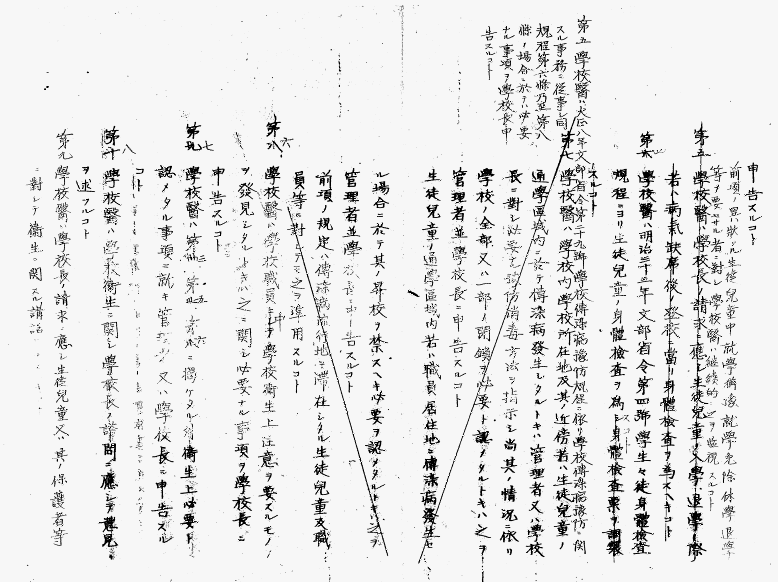 申告スルコト
前項ノ異狀アル生徒兒童中就學猶豫就學免除休學退學
等ヲ要スル者ニ對シ學校醫ハ繼續的ニ監視スルコト
第五 學校醫ハ學校長ノ請求ニ應シ生徒兒童ノ入學退學ノ際
若ハ病氣缺席後ノ登校ニ當リ身體檢査ヲ為スヘキコト
第六 學校醫ハ明治三十三年文部省令第四號學生々徒身體檢査
規程ニヨリ生徒兒童ノ身體檢査ヲ為シ身體檢査票ヲ調製
スルコト
第五 學校醫ハ大正八年文部省令第二十九號學校傳染病豫防規程ニ依リ學校傳染病豫防ニ關
スル事務ニ從事シ同
規程第六條乃至第八
條ノ場合ニ於テハ必要
ナル事項ヲ學校長ニ申
告スルコト
第七 學校醫ハ學校內學校所在地及其ノ近傍若ハ生徒兒童ノ
通學區域內ニ於テ傳染病發生シタルトキハ管理者又ハ學校
長ニ對シ必要ナル豫防消毒方法ヲ指示シ尚其ノ情況ニ依リ
學校ノ全部又ハ一部ノ閉鎖ヲ必要ト認メタルトキハ之ヲ
管理者並學校長ニ申告スルコト
生徒兒童ノ通學區域內若ハ職員居住地ニ傳染病發生セ
ル場合ニ於テ其ノ昇校ヲ禁スヘキ必要ヲ認メタルトキハ之ヲ
管理者並學校長ニ申告スルコト
前項ノ規定ハ傳染病流行地ニ滯在シタル生徒兒童及職
員等ニ對シテ之ヲ準用スルコト
第八六 學校醫ハ學校職員ニシテ學校衛生上注意ヲ要スルモノ
ヲ發見シタルトキハ之ニ關シ必要ナル事項ヲ學校長ニ
申告スルコト
第九七 學校醫ハ第三第四五第六ニ揭ケタル外衛生上必要ト
認メタル事項ニ就キ管理者又ハ學校長ニ申告スル
コト
第十八 學校醫ハ學校衛生ニ關シ學校長ノ諮問ニ應シテ意見
ヲ述フルコト
第九 學校醫ハ學校長ノ請求ニ應シ生徒兒童又ハ其ノ保護者等
ニ對シテ衛生ニ關スル講話